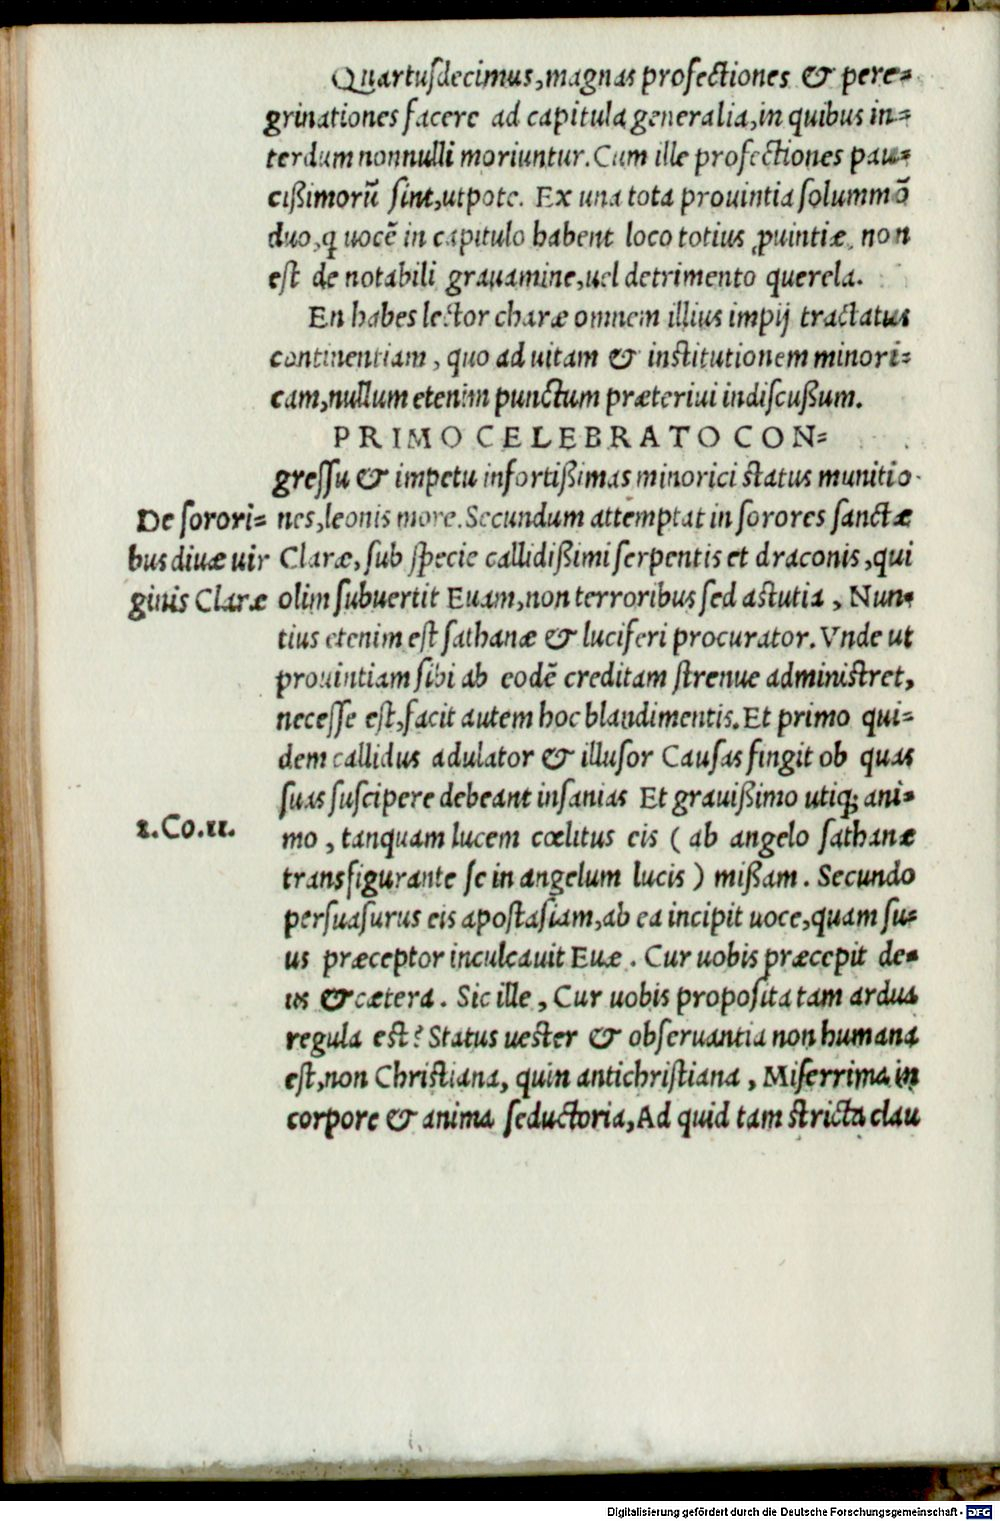 Quartusdecimus, magnas profectiones & pere-
grinationes facere ad capitula generalia, in quibus in-
terdum nonnulli moriuntur. Cum ille profectiones pau-
cißimorũ sint, utpote. Ex una tota prouintia solummõ
duo, q̃ uocẽ in capitulo habent loco totius ꝓuintiæ, non
est de notabili grauamine, uel detrimento querela.
En habes lector charæ omnem illius impij tractatus
continentiam, quo ad uitam & institutionem minori-
cam, nullum etenim punctum præteriui indiscußum.
PRIMO CELEBRATO CON-
gressu & impetu in fortißimas minorici status munitio-
De sorori- nes, leonis more. Secundum attemptat in sorores sanctæ
bus diuæ uir Claræ, sub specie callidißimi serpentis et draconis, qui
ginis Claræ olim subuertit Euam, non terroribus sed astutia, Nun-
tius etenim est sathanæ & luciferi procurator. Vnde ut
prouintiam sibi ab eodẽ creditam strenue administret,
necesse est, facit autem hoc blandimentis. Et primo qui-
dem callidus adulator & illusor Causas fingit ob quas
suas suscipere debeant insanias Et grauißimo utiqꝫ ani-
2. Co. 11. mo, tanquam lucem cœlitus eis ( ab angelo sathanæ
transfigurante se in angelum lucis ) mißam. Secundo
persuasurus eis apostasiam, ab ea incipit uoce, quam su-
us præceptor inculcauit Euæ. Cur uobis præcepit de-
us & cætera. Sic ille, Cur uobis proposita tam ardua
regula est? Status uester & obseruantia non humana
est, non Christiana, quin antichristiana, Miserrima in
corpore & anima seductoria, Ad quid tam stricta clau
Digitalisierung gefördert durch die Deutsche Forschungsgemeinschaft - DFG